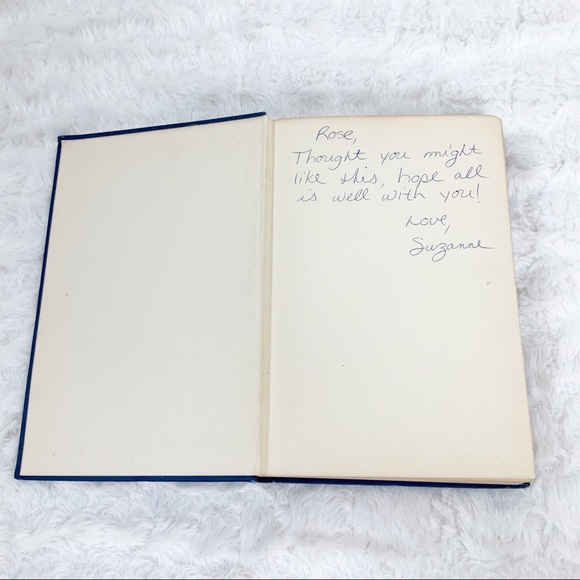 Rose,
Thought you might
like this, hope all
is well with you!
Love,
Suzanne